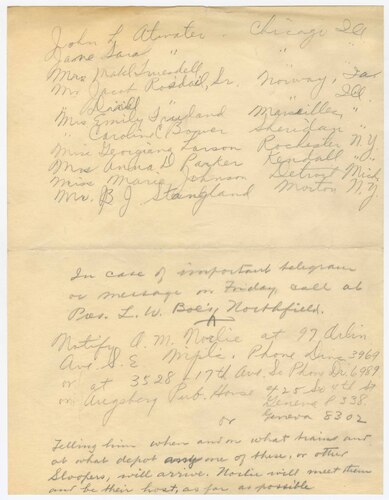 John L Atwater Chicago Ill
Jane Sara " "
Mrs Mabel Truesdell " "
Mr Jacob Rosdail, Sr Norway, Ill
Mrs Emily Fruyland Marseilles, "
" Caroline C Bower Sheridan "
Miss Georgiana Larson Rochester N Y
Mrs Anna D Parker Kendall "
Miss Marie Johnson Detroit Mich
Mr. B J Stangland Morton N.Y.
In case of important telegram
or message on Friday, call at
Pres. L. W. Boe's, Northfield.
Notify A. M. Norlie at 97 Arlin
Ave S.E Mpls. Phone 3969
or at 3528 17th Ave. So Phone Dr 6989
or Augsburg Pub. House 425 So 4th St
Geneva P 338
or Geneva 8302
Telling him when and on what trains and
at what depot any one of these, or other
Sloopers, will arrive. Norlie will meet them
and be their host, as far as possible